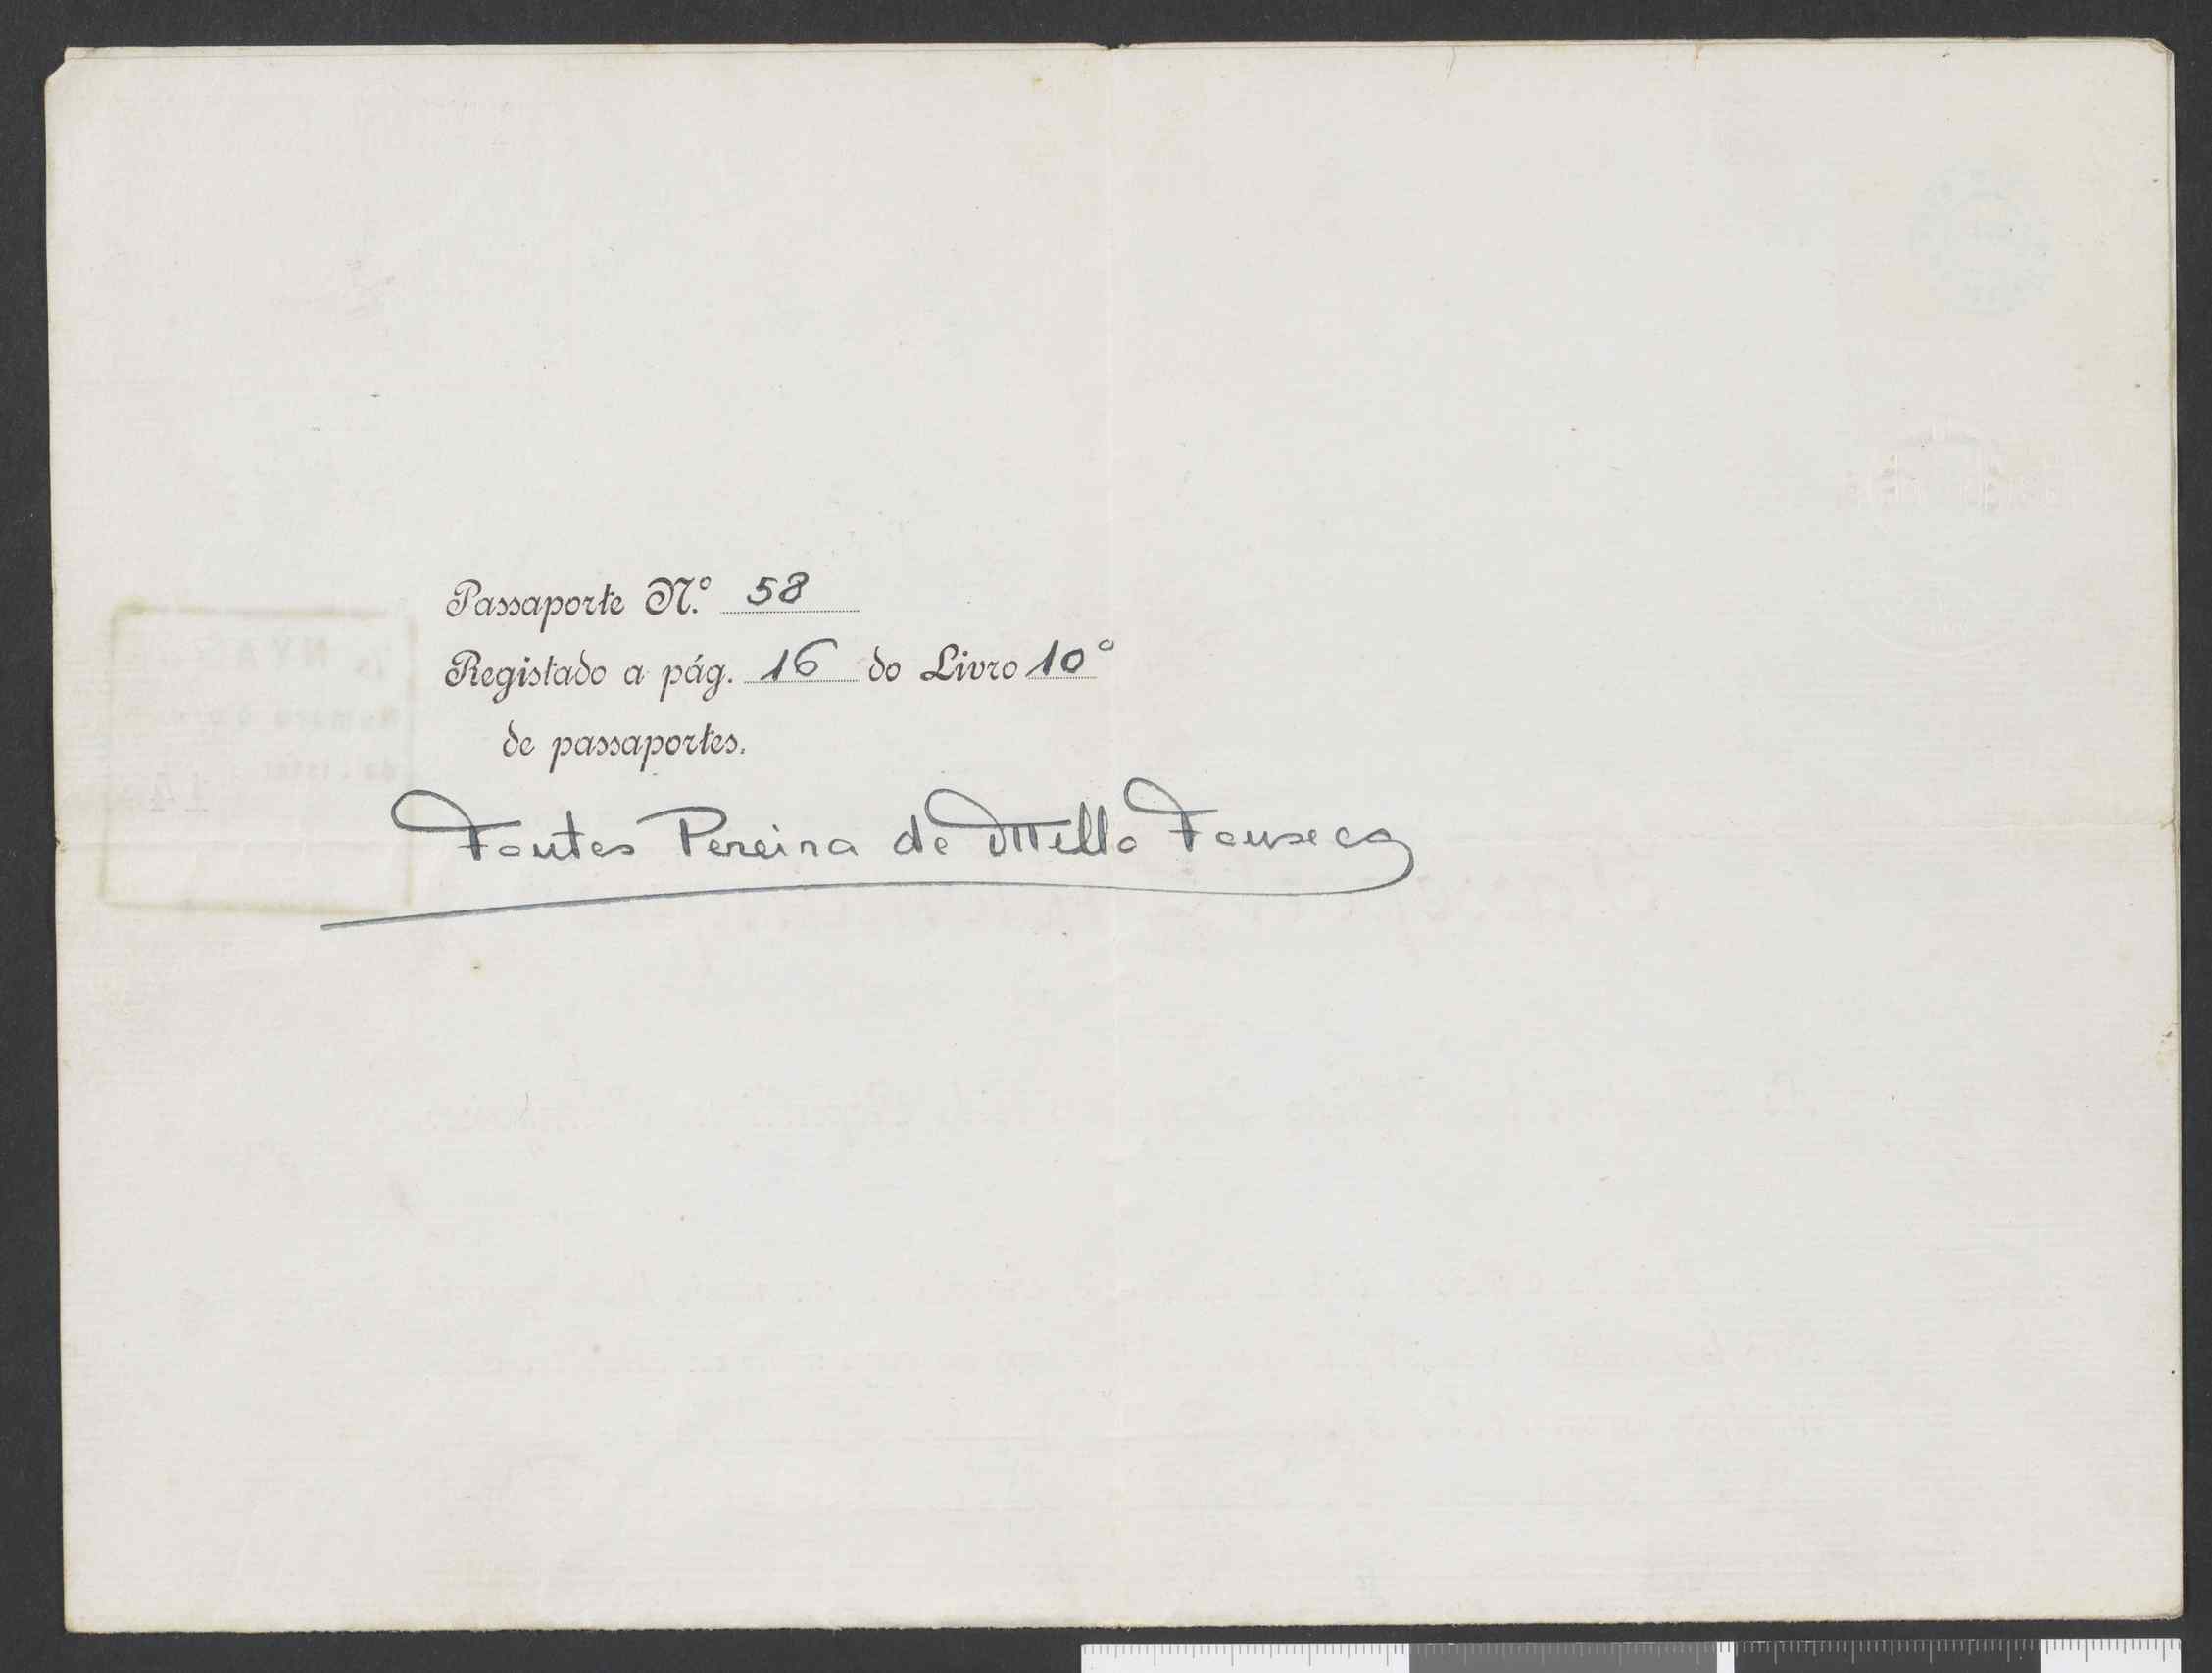 Passaporte N.º 58
Registado a pág. 16 do Livro 10º
de passaportes.
Fontes Pereira de Mello Fonseca